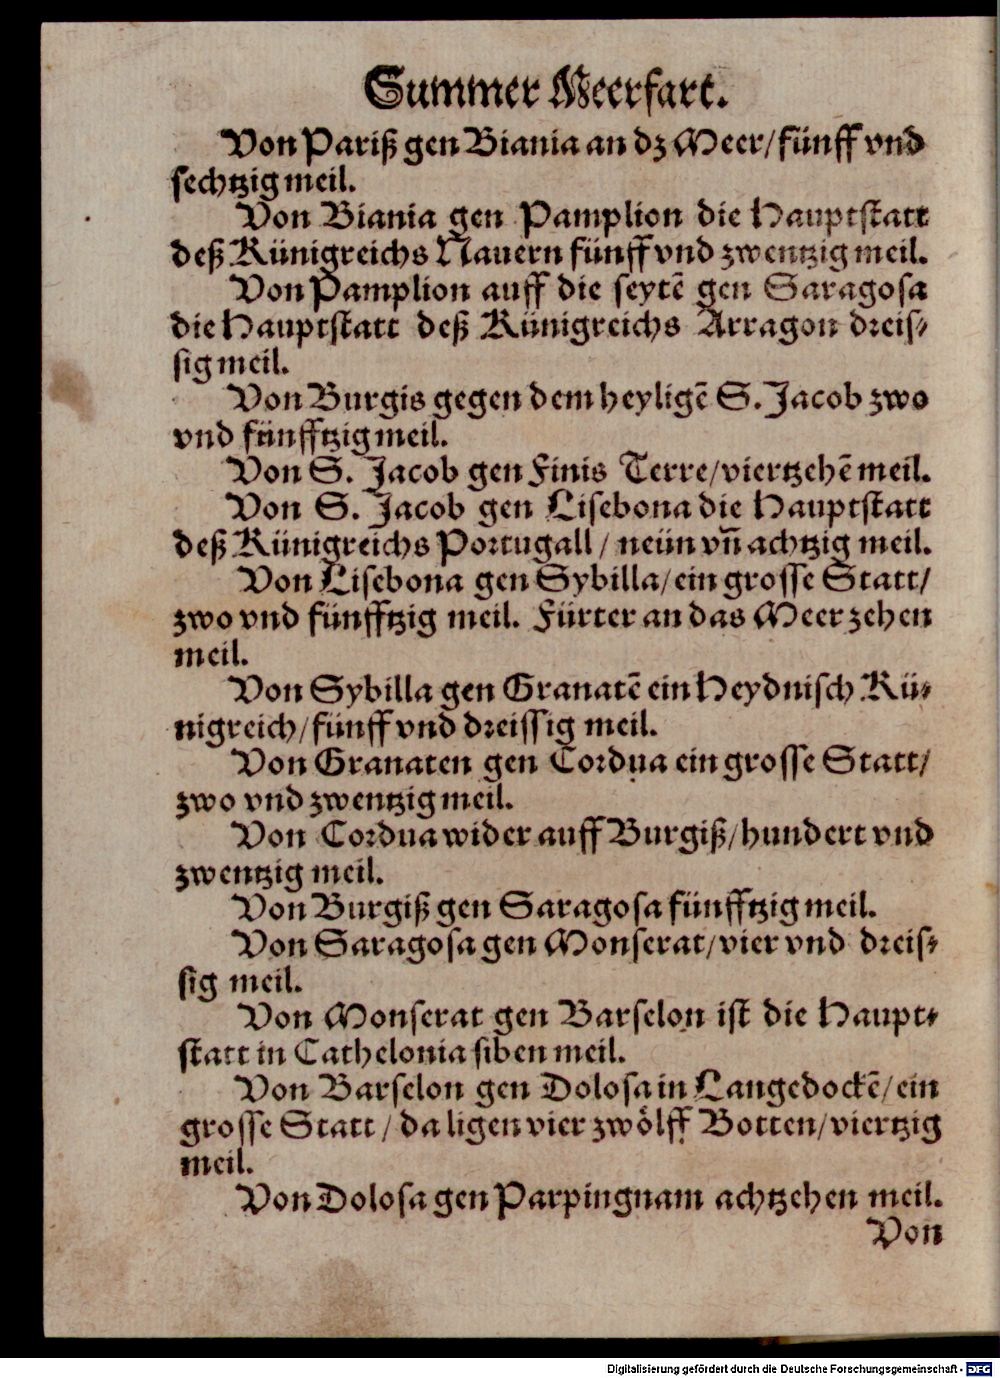 Summer Meerfart.
Von Pariß gen Biania an dz Meer/fünff vnd
sechtzig meil.
Von Biania gen Pamplion die Hauptstatt
deß Künigreichs Nauern fünff vnd zwentzig meil.
Von Pamplion auff die seytẽ gen Saragosa
die Hauptstatt deß Künigreichs Arragon dreis-
sig meil.
Von Burgis gegen dem heyligẽ S. Jacob zwo
vnd fünfftzig meil.
Von S. Jacob gen Finis Terre/viertzehẽ meil.
Von S. Jacob gen Lisebona die Hauptstatt
deß Künigreichs Portugall / neün vñ achtzig meil.
Von Lisebona gen Sybilla/ein grosse Statt/
zwo vnd fünfftzig meil. Fürter an das Meer zehen
meil.
Von Sybilla gen Granatẽ ein Heydnisch Kü-
nigreich/fünff vnd dreissig meil.
Von Granaten gen Cordua ein grosse Statt/
zwo vnd zwentzig meil.
Von Cordua wider auff Burgiß/hundert vnd
zwentzig meil.
Von Burgiß gen Saragosa fünfftzig meil.
Von Saragosa gen Monserat/vier vnd dreis-
sig meil.
Von Monserat gen Barselon ist die Haupt-
statt in Cathelonia siben meil.
Von Barselon gen Dolosa in Langedockẽ/ein
grosse Statt / da ligen vier zwölff Botten/viertzig
meil.
Von Dolosa gen Parpingnam achtzehen meil.
Von
Digitalisierung gefördert durch die Deutsche Forschungsgemeinschaft - DFG